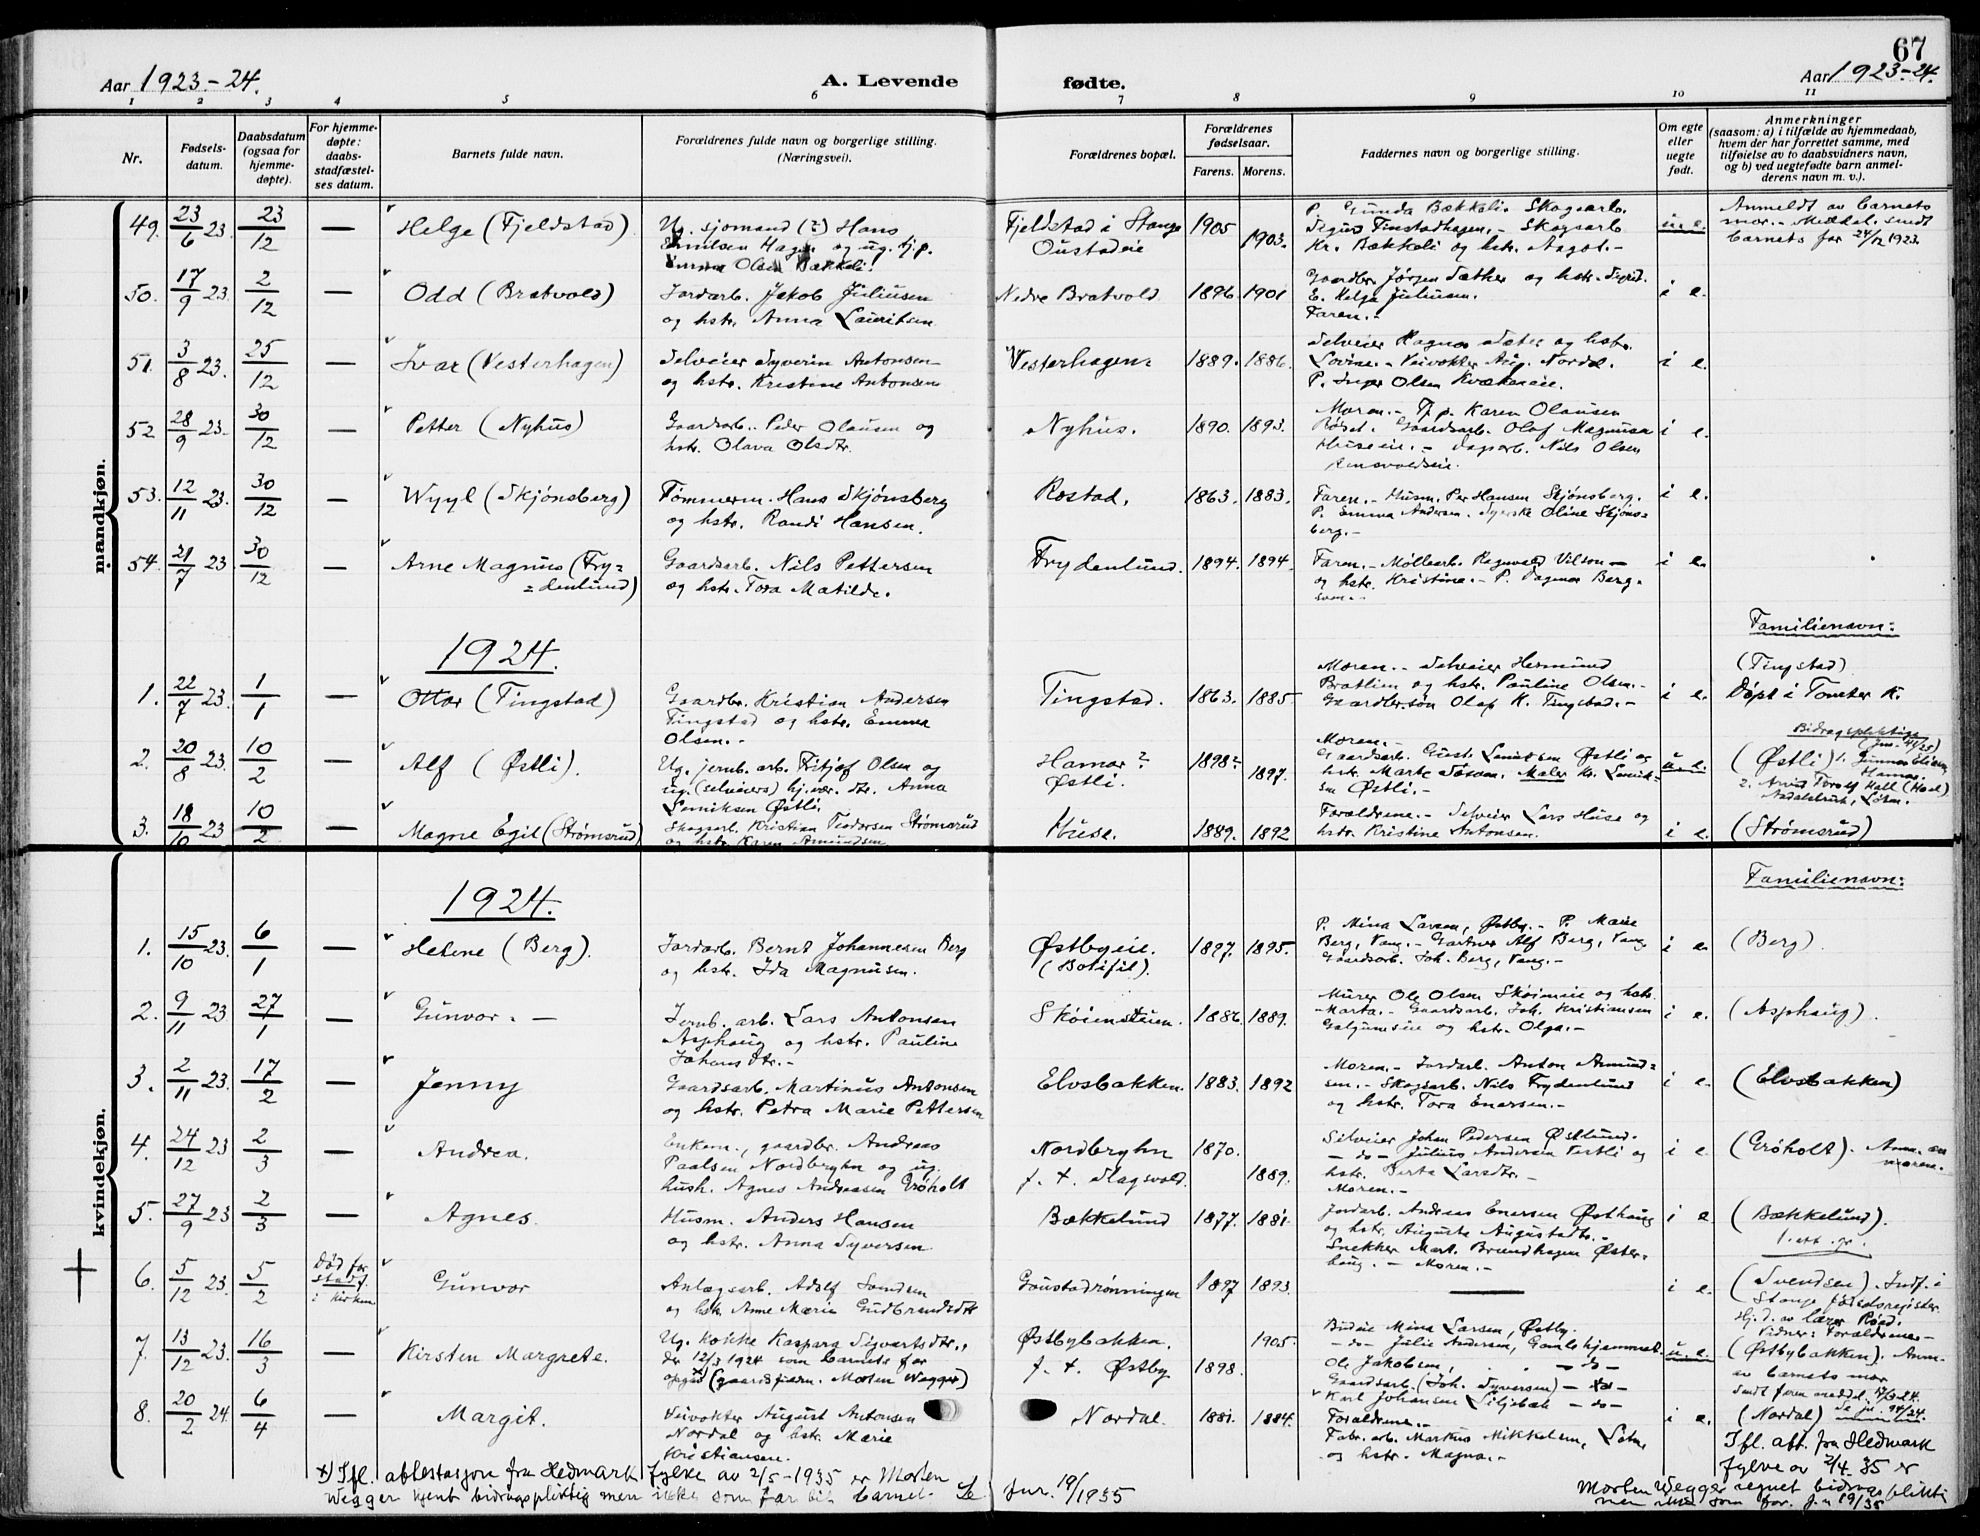 67
Aar 1923-24.
A. Levende fødte.
Aar 1923-24.
1 2 3 4 5 6 7 8 9 10 11
Nr.
Fødsels-
datum.
Daabsdatum
(ogsaa for
hjemme-
døpte).
For hjemme-
døpte:
daabs-
stadfæstel-
ses datum.
Barnets fulde navn.
Forældrenes fulde navn og borgerlige stilling.
(Næringsvei).
Forældrenes bopæl.
Forældrenes
fødselsaar.
Farens. Morens.
Faddernes navn og borgerlige stilling.
Om egte
eller
uegte
født.
Anmerkninger
(saasom: a) i tilfælde av hjemmedaab,
hvem der har forrettet samme, med
tilføielse av to daabsvidners navn,
og b) ved uegtefødte barn anmel-
derens navn m. v.).
mandkjøn.
49. 23/6 23. 23/12 — Helge (Fjeldstad)
Ug. sjømand (?) Hans
Emilsen Hagen og ug. tj.p.
Emma Olsen Bækkeli.
Fjeldstad i Stange
Oustadeie
1905 1903.
P. Gunda Bækkeli. Skogsarb.
Sigurd Finstadhagen. - Skogsarb
Kr. Bækkeli og hstr. Aagot. -
u. e.
Anmeldt av barnets
mor. - Meddel. sendt
barnets far 24/12 1923.
50. 17/9 23. 2/12 — Odd (Bratvold)
Jordarb. Jakob Juliusen
og hstr. Anna Lauritsen
Nedre Bratvold 1896 1901
Gaardbr. Jørgen Sæther og hstr. Sigrid.
E. Helga Juliusen.
Faren. -
i e.
51. 3/8 23. 25/12 — Ivar (Vesterhagen)
Selveier Syverin Antonsen
og hstr. Kristine Antonsen
Vesterhagen. 1889. 1886.
Selveier Ragnar Sæter og hstr.
Lovine. - Veivokter Aug. Nordal.
P. Inger Olsen Kvækeneie.
i e.
52 28/9 23. 30/12 — Petter (Nyhus)
Gaardsarb. Peder Olausen og
hstr. Olava Olsdtr.
Nyhus. 1890. 1893.
Moren. - Tj.p. Karen Olausen
Røset. Gaardsarb. Olaf Magnusen
Huseeie. - Dagarb. Nils Olsen
i e.
53. 12/11 23. 30/12 — Wyyl (Skjønsberg)
Tømmerm. Hans Skjønsberg
og hstr. Randi Hansen.
Rostad. 1863. 1883.
Faren. - Husm. Per Hansen Skjønsberg.
P. Emma Andersen. Syerske Oline Skjøns-
berg. -
i e.
54. 21/7 23 30/12 — Arne Magnus (Fry=
=denlund)
Gaardsarb. Nils Pettersen
og hstr. Tora Matilde.
Frydenlund. 1894. 1894
Faren. - Møllearb. Ragnvald Vilson -
og hstr. Kristine. - P. Dagmar Berg-
sven. -
i e.
1924.
Familienavn:
1. 22/7 23. 1/1 — Ottar (Tingstad)
Gaardbr. Kristian Andersen
Tingstad og hstr. Emma
Olsen. -
Tingstad. 1863. 1885.
Moren. - Selveier Hermund
Bratlien og hstr. Pauline Olsen. -
Gaardbr.søn Olaf K. Tingstad. -
i e.
(Tingstad)
Døpt i Tomter K.
2. 20/8 23. 10/2 — Alf (Østli).
Ug. jernb. arb. Fritjof Olsen og
ug. (selveiers) hj.vær. dtr. Anna
Lauriksen Østli.
Hamar?
Østli.
1898? 1897.
Moren. -
Gaardsarb. Gust. Østli og
hstr. Marte. Maler Kr.
Østli. -
u. e.
Bidragspliktige
(Østli)
Hamar.
2. Arvid Torolf Hall
Aadalsbruk, Løten.
3. 18/10 23 10/2 — Magne Egil (Strømsrud)
Skogsarb. Kristian Teodorsen Strømsrud
og hstr. Karen Amundsen
Huse. 1889. 1892
Foreldrene. - Selveier Lars Huse og
hstr. Kristine Antonsen.
i e.
(Strømsrud)
kvindekjøn.
1924.
Familienavn:
1. 15/10 23. 6/1 — Helene (Berg).
Jordarb. Bernt Johannesen Berg
og hstr. Ida Magnusen.
Østbyeie.
1897. 1895.
P. Mina Larsen, Østby. - P. Marie
Berg, Vang. - Gartner Alf Berg, Vang.
Gaardsarb. Joh. Berg, Vang. -
i e.
(Berg).
2. 9/11 23. 27/1 — Gunvor. -
Jernb. arb. Lars Antonsen
Asphaug og hstr. Pauline
Johansdtr. -
Skøiensteien. 1886. 1889.
Murer Ole Olsen Skøieneie og hstr.
Marta. - Gaardsarb. Joh. Kristiansen
Galgumseie og hstr. Olga. -
i e.
(Asphaug).
3. 2/11 23. 17/2 — Jenny
Gaardsarb. Martinus Antonsen
og hstr. Petra Marie Pettersen
Elvebakken. 1883. 1892
Moren. - Jordarb. Anton Amund=
sen. - Skogsarb. Nils Frydenlund
og hstr. Tora Enersen. -
i e.
(Elvebakken)
4. 24/12 23 2/3 — Andrea.
Enkem., gaardbr. Andreas
Paalsen Nordbryhn og ug.
hush. Agnes Andreasen Grøholt
Nordbryhn
f. t. Slagsvold.
1870. 1889.
Selveier Johan Pedersen Østlund.
- do - Julius Andersen Vestli og
hstr. Berta Larsdtr. -
Moren. -
i e
(Grøholt). Anm. av
moren.
5. 27/9 23 2/3 — Agnes.
Husm. Anders Hansen
og hstr. Anna Syversen
Bækkelund 1877. 1881.
Jordarb. Andreas Enersen Østhaug
og hstr. Augusta Augustadtr. -
Snekker Mart. Brændhagen Øster-
haug. - Moren. -
i e
(Bækkelund).
6. 5/12 23. 5/2
Død før
stadf.
i kirken
Gunvor
Anlægsarb. Adolf Svendsen
og hstr. Anne Marie Gudbrandsdtr
Goustadrønningen 1897 1893.
—
i e.
(Svendsen). Indf. i
Stange fødselsregister.
Hj.d. av lærer Røed.
Vidner: Foreldrene -
7. 13/12 23. 16/3 — Kirsten Margrete.
Ug. kokke Kaspara Sigvartsdtr.,
der 12/3 1924 som barnets far
opgir (gaardsfuldm. Morten Wegger)
Østbybakken.
f. t. Østby
1898. 1905.
Budeie Mina Larsen, Østby.
- do - Julie Andersen, Gamlehjemmet
Ole Jakobsen, - do -
Gaardsarb. (Joh. Syversen) - do -
Karl Johansen Liljebæk - do -
u. e.
(Østbybakken). Anm-
av barnets mor
8. 20/2 24. 6/4 — Margit.
Veivokter August Antonsen
Nordal og hstr. Marie
Kristiansen.
Nordal. 1881. 1884.
Foreldrene. -
Fabr. arb. Markus Mikkelsen, Løten
og hstr. Magna. -
i e.
(Nordal)
Ifl. att. fra Hedmark
fylke av 2/4 35 er
Morten Wegger regnet bidragspliktig
men ikke som far. J.n 19/35
x) Ifl. attestasjon fra Hedmark fylke av 2/5-1935 er Morten
Wegger kjent bidragspliktig men ikke som far til barnet. Se
Jnr. 19/1935